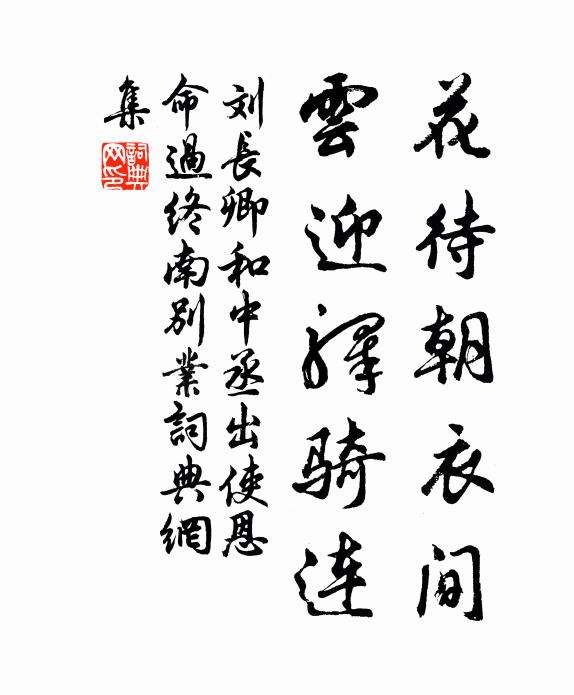 花待朝衣间
雲迎驿骑连
刘長卿和中丞出使恩
命過终南别業詞典網
集
詞典网印